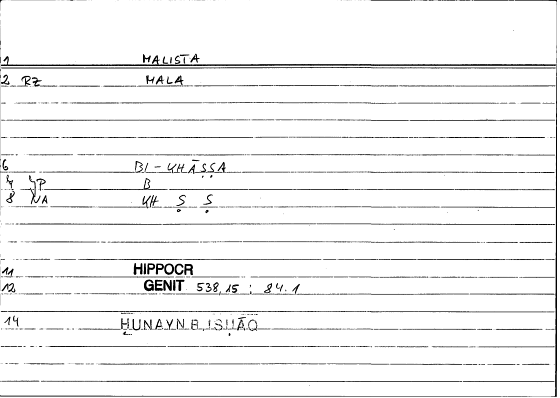 1 MALISTA
2 RZ MALA
6 BI-KHĀṢṢA
7 JP B
8 NA KH Ṣ Ṣ
11 HIPPOCR
12 GENIT 538,15 : 84.1
14 ḤUNAYN B. ISḤĀQ